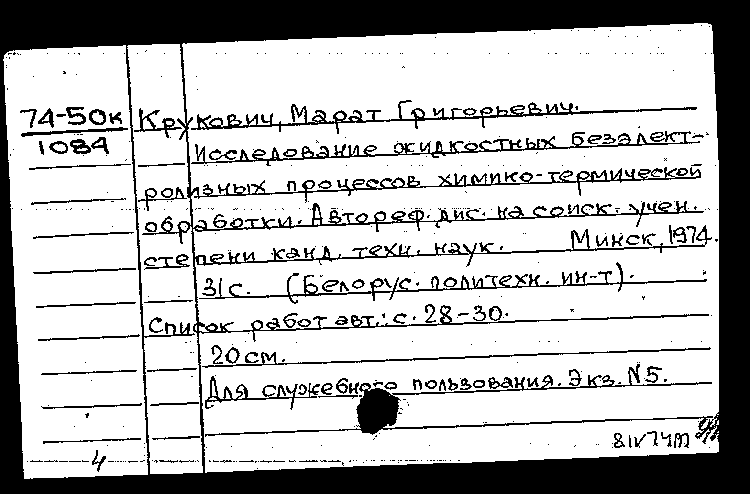 74-50к
1084
Крукович, Марат Григорьевич.
Исследование жидкостных безэлект-
ролизных процессов химико-термической
обработки. Автореф. дис. на соиск. учен.
степени канд. техн. наук. Минск, 1974.
31с. (Белорус. политехн. ин-т).
Список работ авт.: с. 28-30.
20см.
Для служебного пользования. Экз. N5.
4